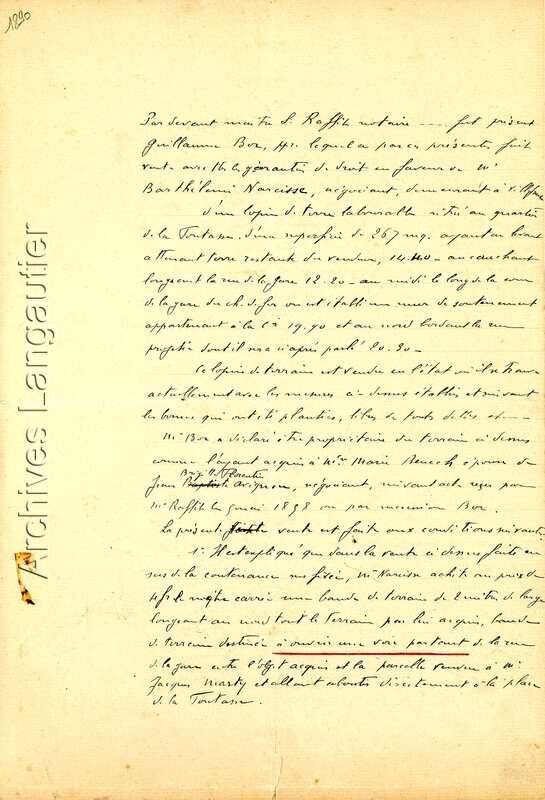 1890
Par devant maitre S. Raffit notaire ---- fut présent
Guillaume Bor, lequel a par ces présentes, fait
vente avec ttes les garanties de droit en faveur de Mr
Barthélemi Narcisse, négociant, demeurant à Villefranche
d'un lopin de terre labourable situé au quartier
de la Toutasse. d'une superficie de 267 mq. ayant au levant
attenant terre restante du vendeur, 14.40 - au couchant
longeant la rue de la gare 12.20 - au midi le long de la cour
de la gare du ch. de fer où est établi un mur de soutenement
appartenant à la Cie 19.90 et au nord bordant la rue
projetée dont il sera ci après parlé 20.30 -
Ce lopin de terrain est vendu en l'état où il se trouve
actuellement avec les mesures ci-dessus établies et suivant
les bornes qui ont été plantées, libre de toute dette
Mr Bor a déclaré être propriétaire du terrain ci dessus
comme l'ayant acquis à Mme Marie épouse de
Jean Baptiste Florentin Avignon, négociant, suivant acte reçu par
Mr Raffit le mai 1898 ou par Bor.
La présente vente est faite aux conditions suivantes.
1° Il est expliqué que dans la vente ci dessus faite en
sus de la contenance sus fixée, Mr Narcisse achète au prix de
4 f le mètre carré une bande de terrain de 2 mètres de large
longeant au nord tout le terrain par lui acquis, bande
de terrain destinée à ouvrir une voie partant de la rue
de la gare entre l'objet acquis et la parcelle vendue à Mr
Jacques Marty et allant aboutir directement à la place
de la Toutasse.
Archives Langautier